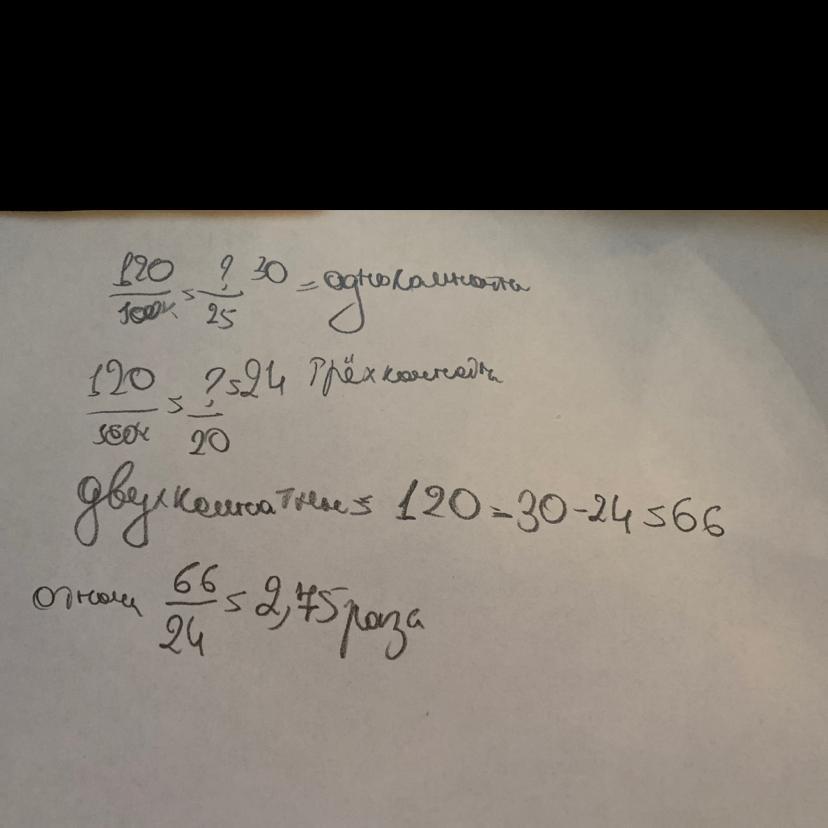 120/100% = ?/25 30 = однокомната
120/100% = ?/20 = 24 Трёхкомнатн
двухкомнатных = 120 = 30 - 24 = 66
66/24 = 2,75 раза